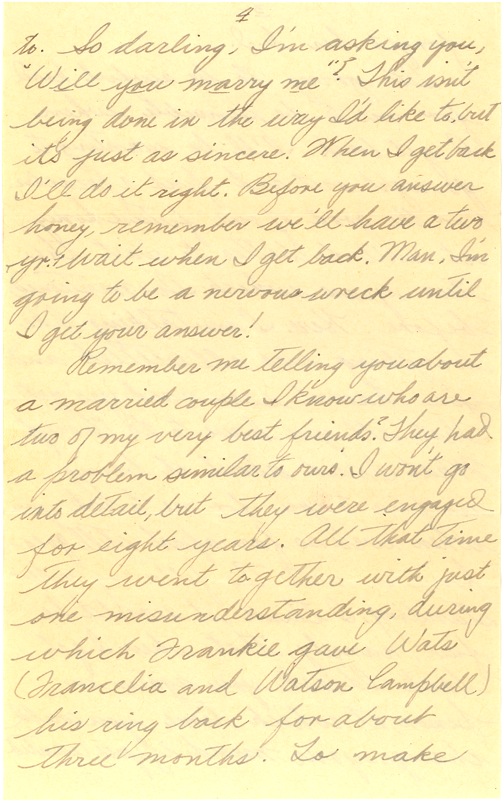 4
to. So darling, I'm asking you,
"Will you marry me"? This isn't
being done in the way I'd like to, but
it's just as sincere. When I get back
I'll do it right. Before you answer
honey, remember we'll have a two
yr. wait when I get back. Man, I'm
going to be a nervous wreck until
I get your answer!
Remember me telling you about
a married couple I know who are
two of my very best friends? They had
a problem similar to ours. I won't go
into detail, but they were engaged
for eight years. All that time
they went together with just
one misunderstanding, during
which Frankie gave Wats
(Francelia and Watson Campbell)
his ring back for about
three months. To make